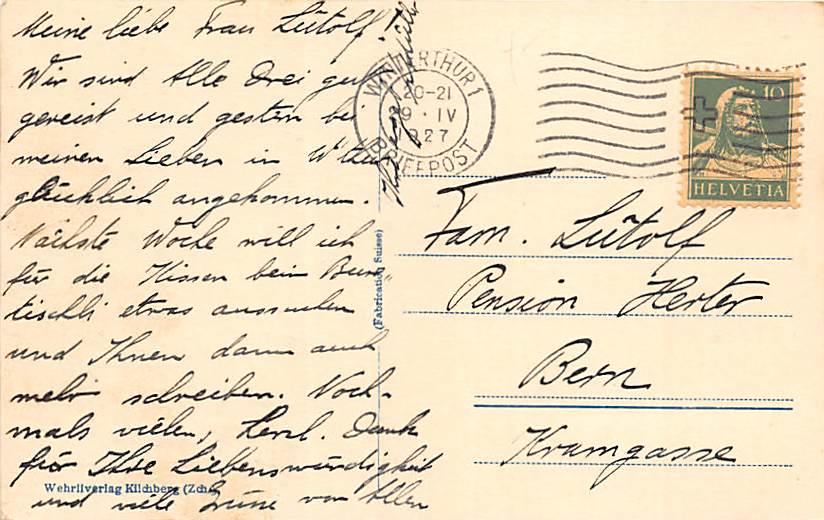 Meine liebe Frau Lütolf!
Wir sind Alle Drei gut
gereist und gestern bei
meinen Lieben in W'thur
glücklich angekommen.
Nächste Woche will ich
für die Kissen beim
tischli etwas aussuchen
und Ihnen dann auch
mehr schreiben. Noch-
mals vielen, herzl. Dank
für Ihre Liebenswürdigkeit
und viele Grüsse von Allen
Wehrliverlag Kilchberg (Zch.)
(Fabrication Suisse)
WINTERTHUR 1
20-21
9 · IV
1927
BRIEFPOST
10
HELVETIA
Fam. Lütolf
Pension Herter
Bern
Kramgasse